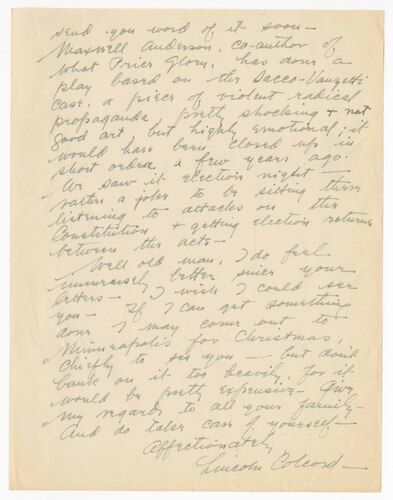 send you word of it soon —
Maxwell Anderson, co-author of
What Price Glory, has done a
play based on the Sacco-Vanzetti
case, a piece of violent radical
propaganda pretty shocking + not
good art, but highly emotional; it
would have been closed up in
short order a few years ago.
We saw it election night —
rather a joke to be sitting there
listening to attacks on the
Constitution + getting election returns
between the acts —
Well old man, I do feel
immensely better since your
letters — I wish I could see
you — If I can get something
done I may come out to
Minneapolis for Christmas,
chiefly to see you — but don't
bank on it too heavily, for it
would be pretty expensive — Give
my regards to all your family —
And do take care of yourself —
Affectionately
Lincoln Colcord —